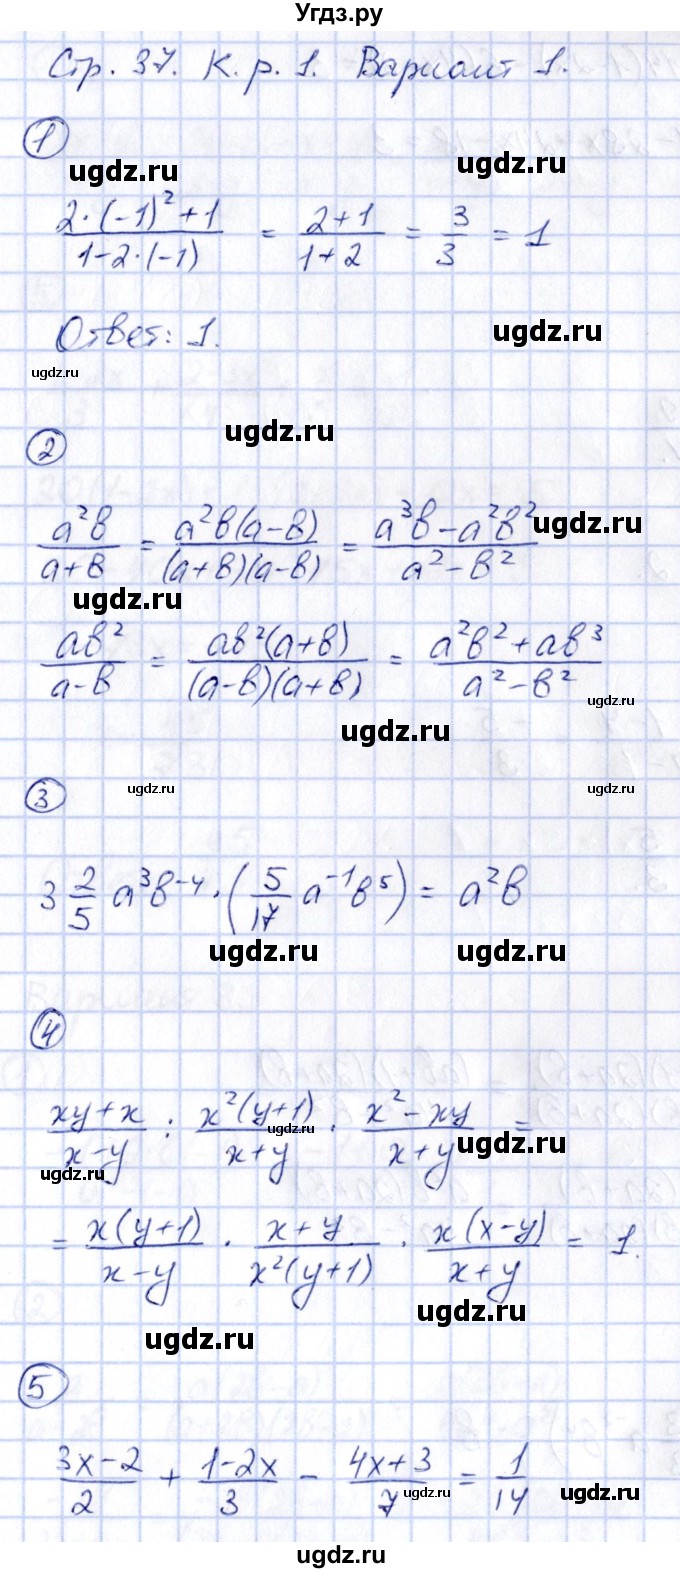 Угдз.ру
Стр. 37. К. р. 1. Вариант 1.
1
ugdz.ru ugdz.ru
(2·(-1)²+1)/(1-2·(-1)) = (2+1)/(1+2) = 3/3 = 1
Ответ: 1.
ugdz.ru
ugdz.ru
ugdz.ru
2
a²b/(a+b) = a²b(a-b)/((a+b)(a-b)) = (a³b-a²b²)/(a²-b²)
ugdz.ru
ugdz.ru
ab²/(a-b) = ab²(a+b)/((a-b)(a+b)) = (a²b²+ab³)/(a²-b²)
ugdz.ru
ugdz.ru
3
ugdz.ru ugdz.ru
3 2/5 a³b⁻⁴·(5/17 a⁻¹b⁵) = a²b
ugdz.ru ugdz.ru
4
(xy+x)/(x-y) : x²(y+1)/(x+y) · (x²-xy)/(x+y) =
ugdz.ru
ugdz.ru
ugdz.ru
= x(y+1)/(x-y) · (x+y)/(x²(y+1)) · x(x-y)/(x+y) = 1.
ugdz.ru
ugdz.ru
5
(3x-2)/2 + (1-2x)/3 - (4x+3)/7 = 1/14
ugdz.ru ugdz.ru
ugdz.ru